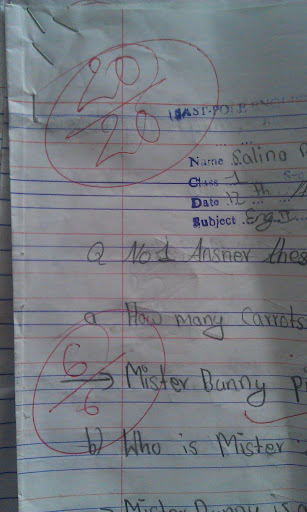 20
20
Name Salina
Class 1
Date 12th
Subject Eng II
Q No 1 Answer these
a How many Carrots
6
6
→ Mister Bunny
b) Who is Mister
→ Mister Bunny is